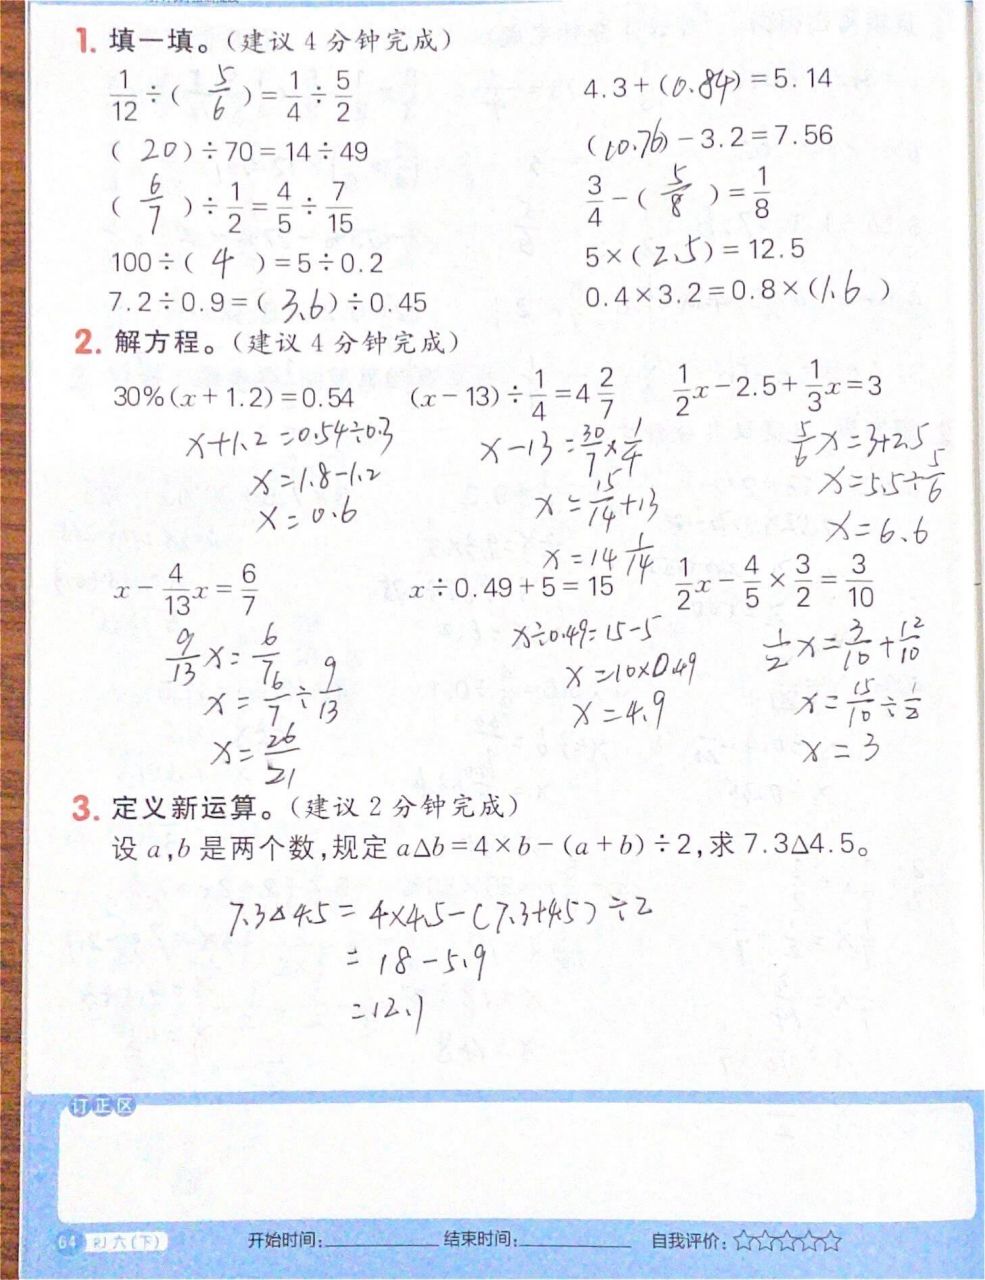 1. 填一填。(建议 4 分钟完成)
1/12÷( 5/6 )=1/4÷5/2    4.3+(0.84)=5.14
( 20 )÷70=14÷49    (10.76)-3.2=7.56
( 6/7 )÷1/2=4/5÷7/15    3/4-( 5/8 )=1/8
100÷( 4 )=5÷0.2    5×(2.5)=12.5
7.2÷0.9=( 3.6 )÷0.45    0.4×3.2=0.8×(1.6 )
2. 解方程。(建议 4 分钟完成)
30%(x+1.2)=0.54    (x-13)÷1/4=4 2/7    1/2x-2.5+1/3x=3
x+1.2=0.54÷0.3    x-13=30/7×1/4    5/6x=3+2.5
x=1.8-1.2    x=15/14+13    x=5.5÷5/6
x=0.6    x=14 1/14    x=6.6
x-4/13x=6/7    x÷0.49+5=15    1/2x-4/5×3/2=3/10
9/13x=6/7    x÷0.49=15-5    1/2x=3/10+12/10
x=6/7÷9/13    x=10×0.49    x=15/10÷1/2
x=26/21    x=4.9    x=3
3. 定义新运算。(建议 2 分钟完成)
设 a,b 是两个数,规定 a△b=4×b-(a+b)÷2,求 7.3△4.5。
7.3△4.5=4×4.5-(7.3+4.5)÷2
=18-5.9
=12.1
订正区
64 RJ 六(下)    开始时间:    结束时间:    自我评价:☆☆☆☆☆